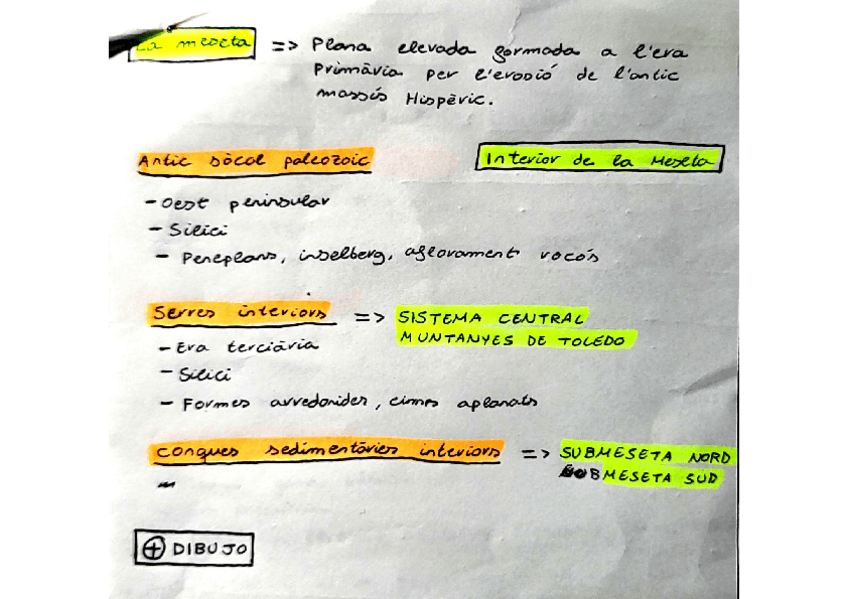 La meseta => Plana elevada formada a l'era
Primària per l'erosió de l'antic
massís Hispèric.
Antic sòcol paleozoic
Interior de la Meseta
- Oest peninsular
- Silici
- Peneplans, inselberg, aflorament rocós
Serres interiors => SISTEMA CENTRAL
MUNTANYES DE TOLEDO
- Era terciària
- Silici
- Formes arredonides, cimes aplanats
Conques sedimentàries interiors => SUBMESETA NORD
SUBMESETA SUD
+ DIBUJO